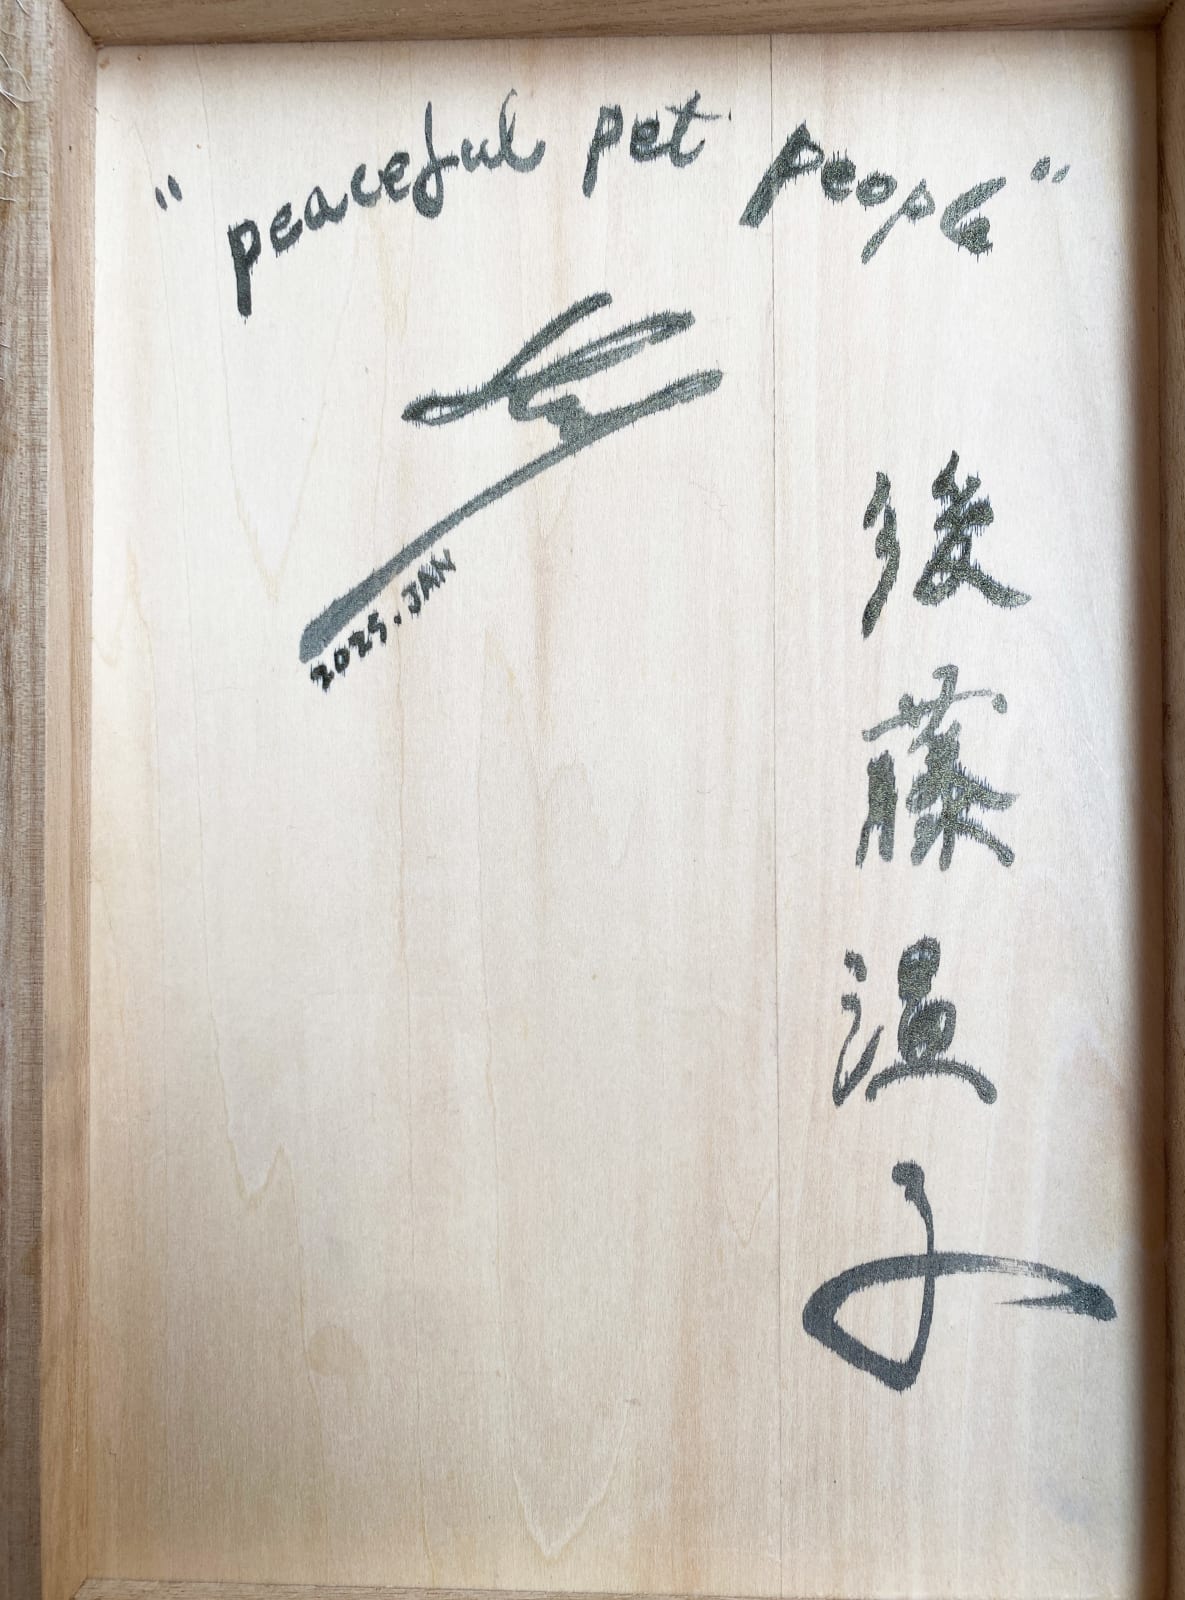 "peaceful pet people"
2025.JAN
後藤温子